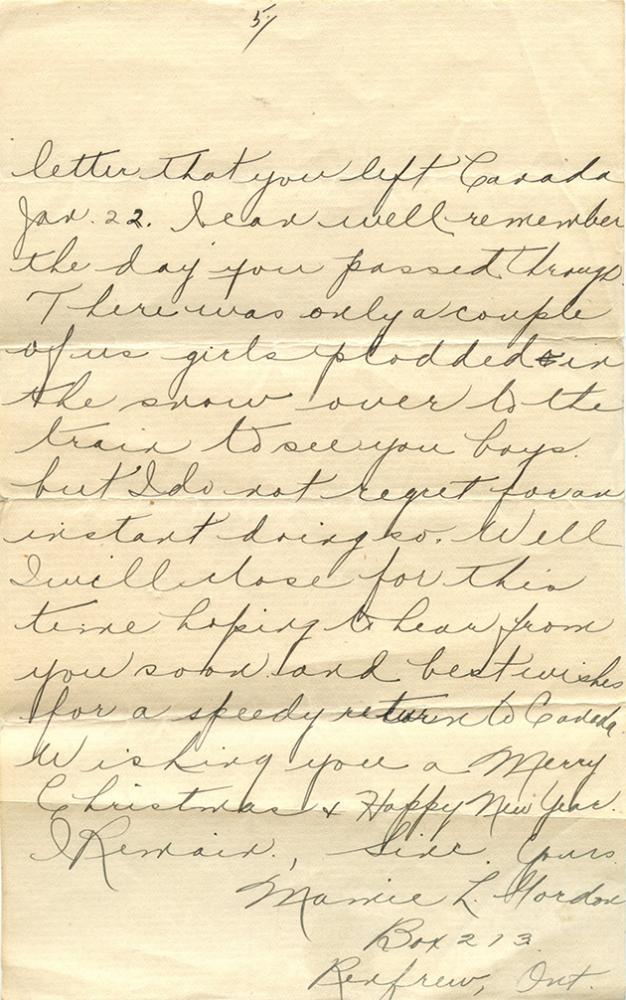 5/
letter that you left Canada
Jan. 22. I can well remember
the day you passed through.
There was only a couple
of us girls plodded in
the snow over to the
train to see you boys.
but I do not regret for an
instant doing so. Well
I will close for this
time hoping to hear from
you soon and best wishes
for a speedy return to Canada.
Wishing you a Merry
Christmas & Happy New Year.
I Remain, Sinc. Yours
Mamie L. Gordon
Box 213
Renfrew, Ont.